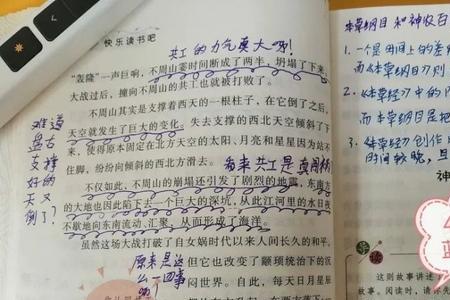 快乐读书吧
共工的力气真大呀!
“轰隆”一声巨响,不周山霎时间断成了两半,坍塌了下来
大战过后,撞向不周山的共工也就被打败了。
不周山其实是支撑着西天的一根柱子,在它倒了之后,
天空就发生了巨大的变化。失去支撑的西北天空倾斜了下
来,使得原本固定在北方天空的太阳、月亮和星星因为站不
住脚,纷纷向倾斜的西北方滑去。
看来共工是真闯祸
不仅如此,不周山的崩塌还引发了剧烈的地震,东南方
的大地也因此陷下去一个巨大的深坑,从此江河里的水日夜
不歇地向东南流动、汇聚,从而形成了海洋。
虽然这场大战打破了自女娲时代以来人间长久的和平,
但它也改变了颛顼统治下的沉
闷世界。自此,每天日月星辰
难道
盘古
支撑
好的
天又
倒了?
原来是这
么一回事
本草纲目 和 神
1.一个是 时间上的差
而《本草纲目》则
2.《本草经》中的
而 本草纲目是
3.《本草经》创作
时间较晚,且
神
导读
这则故事讲述了
故事。阅读时,请你